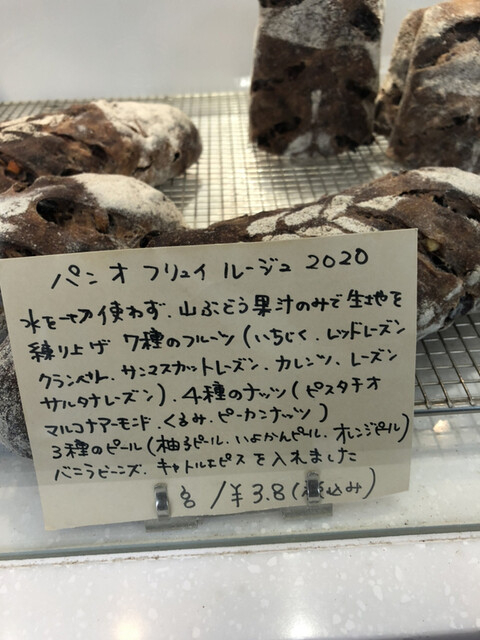 パン オ フリュイ ルージュ 2020
水を一切使わず、山ぶどう果汁のみで生地を
練り上げ 7種のフルーツ(いちじく、レッドレーズン
クランベリー、サンマスカットレーズン、カレンツ、レーズン
サルタナレーズン)、4種のナッツ(ピスタチオ
マルコナアーモンド、くるみ、ピーカンナッツ)
3種のピール(柚子ピール、いよかんピール、オレンジピール)
バニラビーンズ、キャトルエピスを入れました
g/¥3.8(税込み)